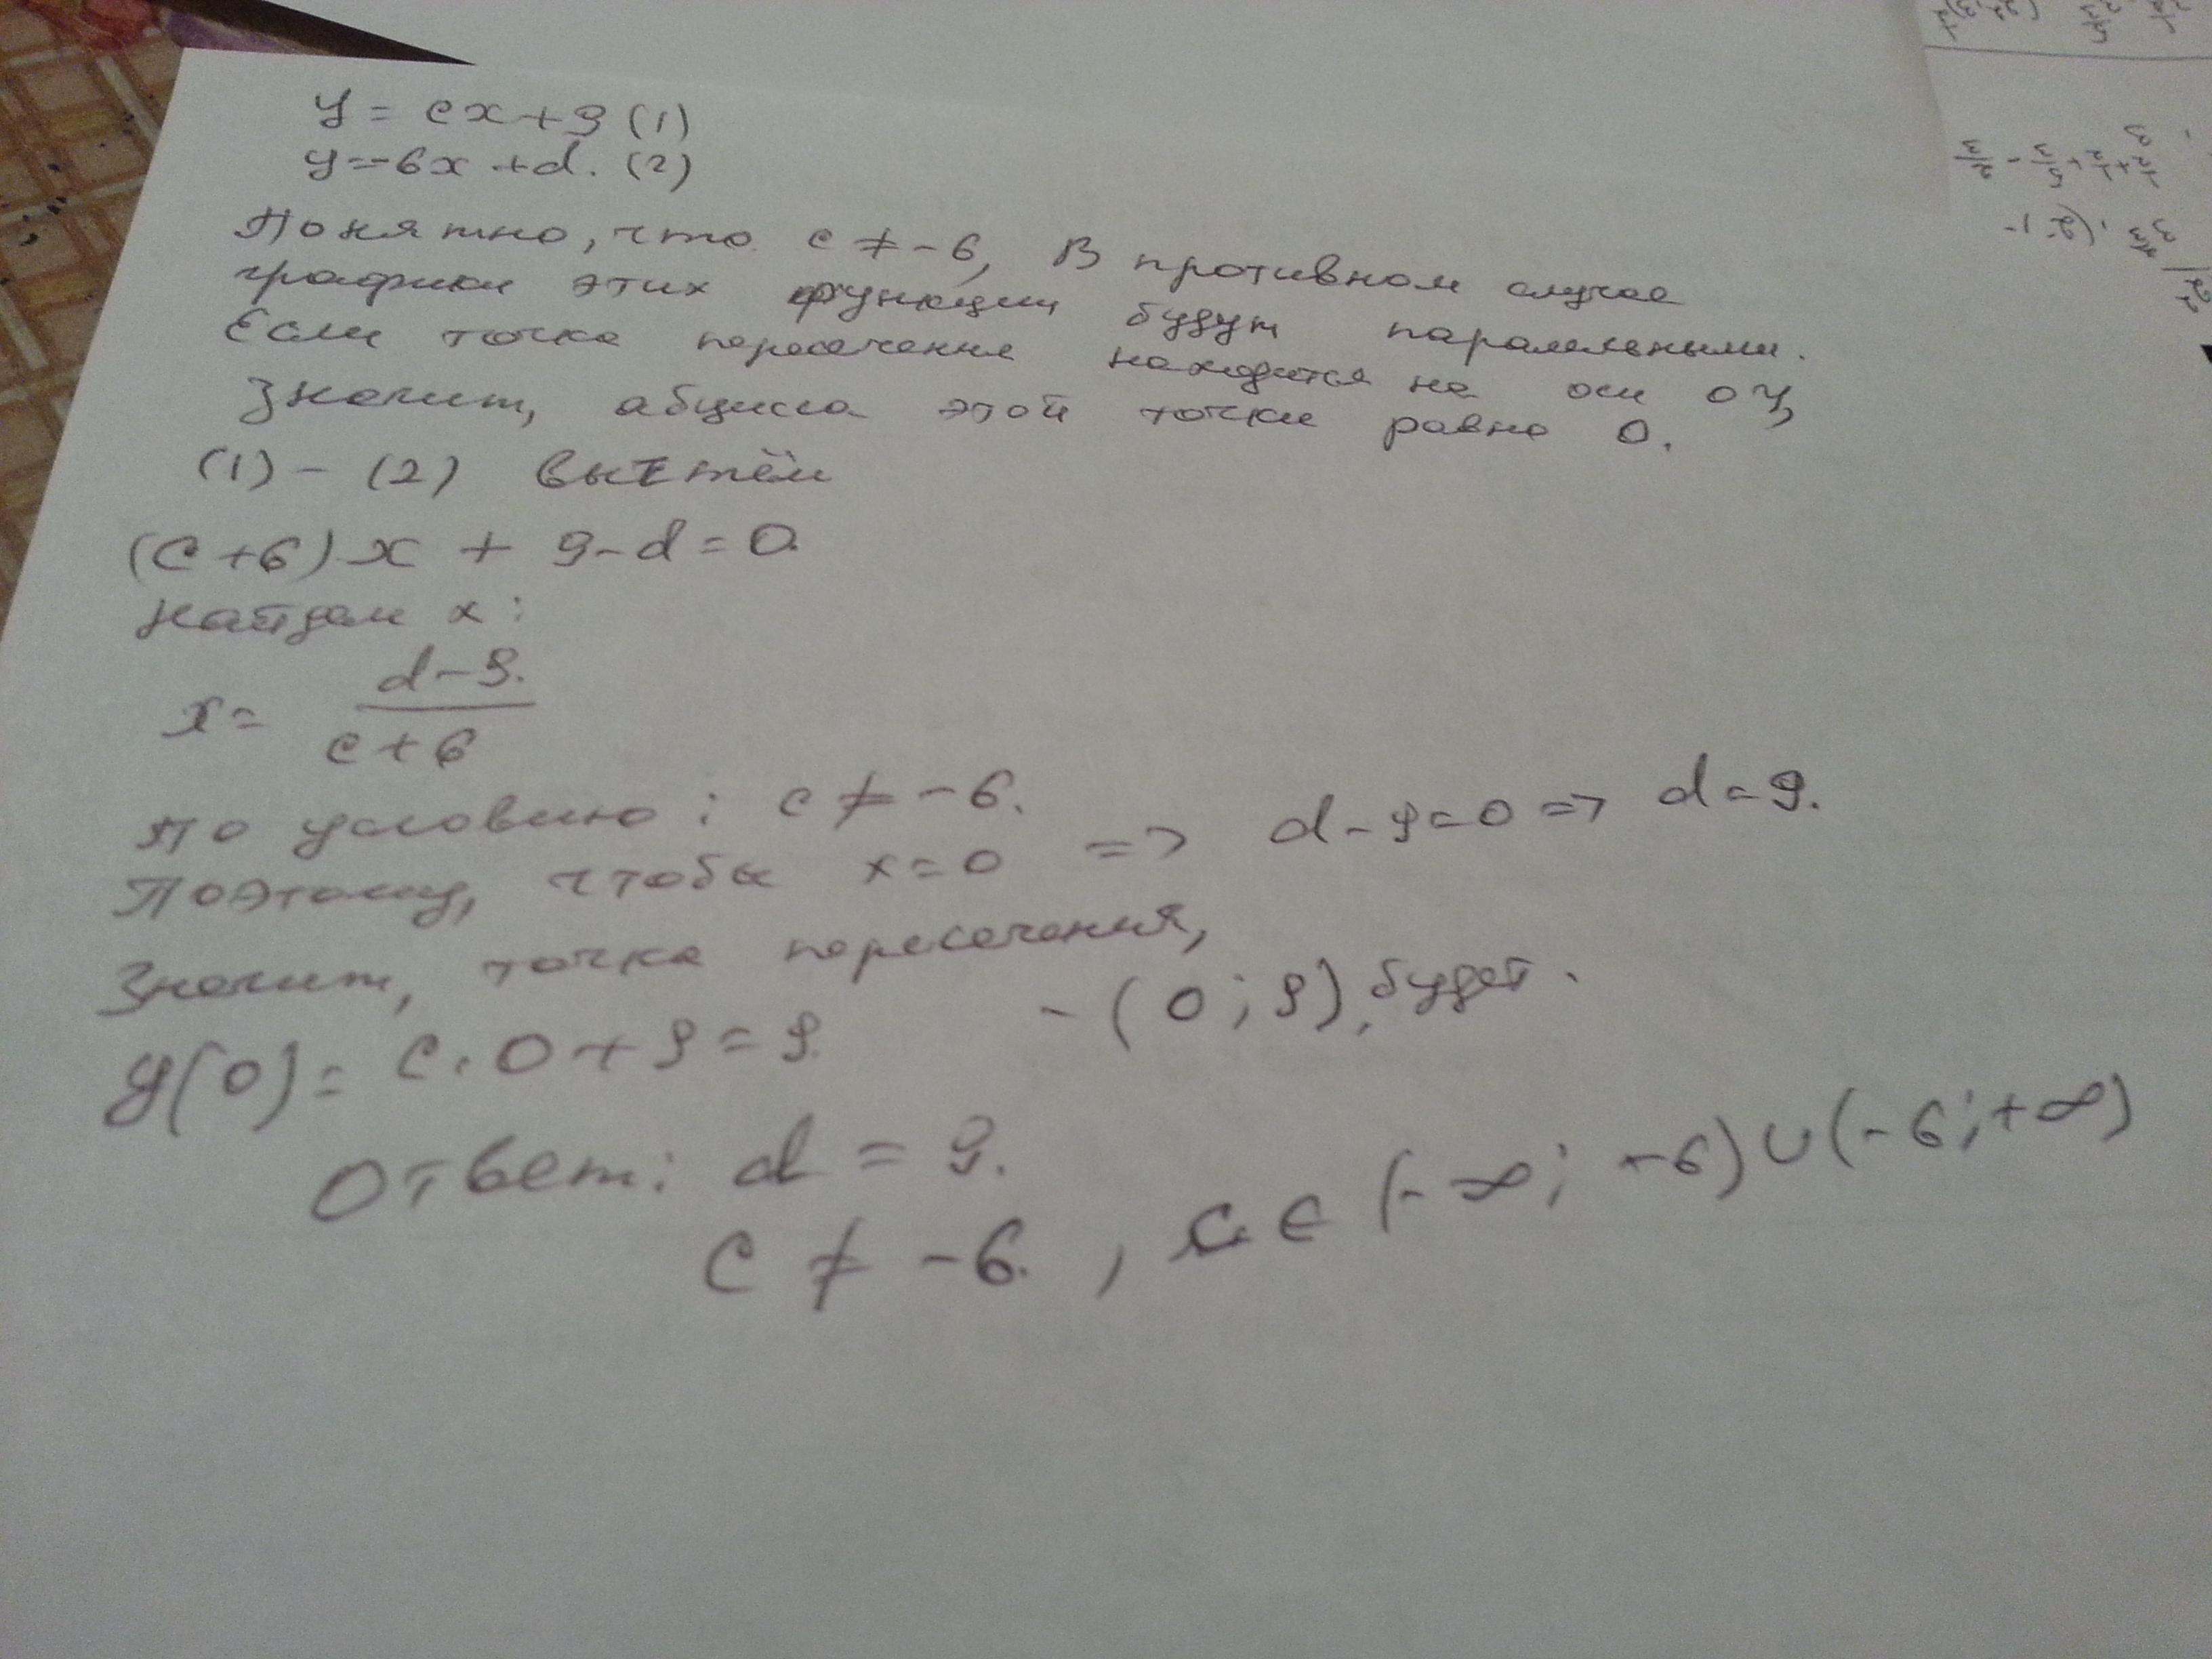 y = cx+9 (1)
y=-6x+d. (2)
Понятно, что c ≠ -6, В противном случае
графики этих функции будут паралельными.
Если точка пересечения находится на оси оу,
Значит, абцисса этой точки равна 0.
(1) - (2) вычтем
(c+6)x + 9-d=0.
найдем x:
x= \frac{d-9.}{c+6}
по условию: c ≠ -6.
Поэтому, чтобы x=0 => d-9=0 => d=9.
Значит, точка пересечения, - (0;9), будет.
y(0)= c·0+9=9.
Ответ: d = 9.
c ≠ -6. , c ∈ (-∞; -6)∪(-6;+∞)